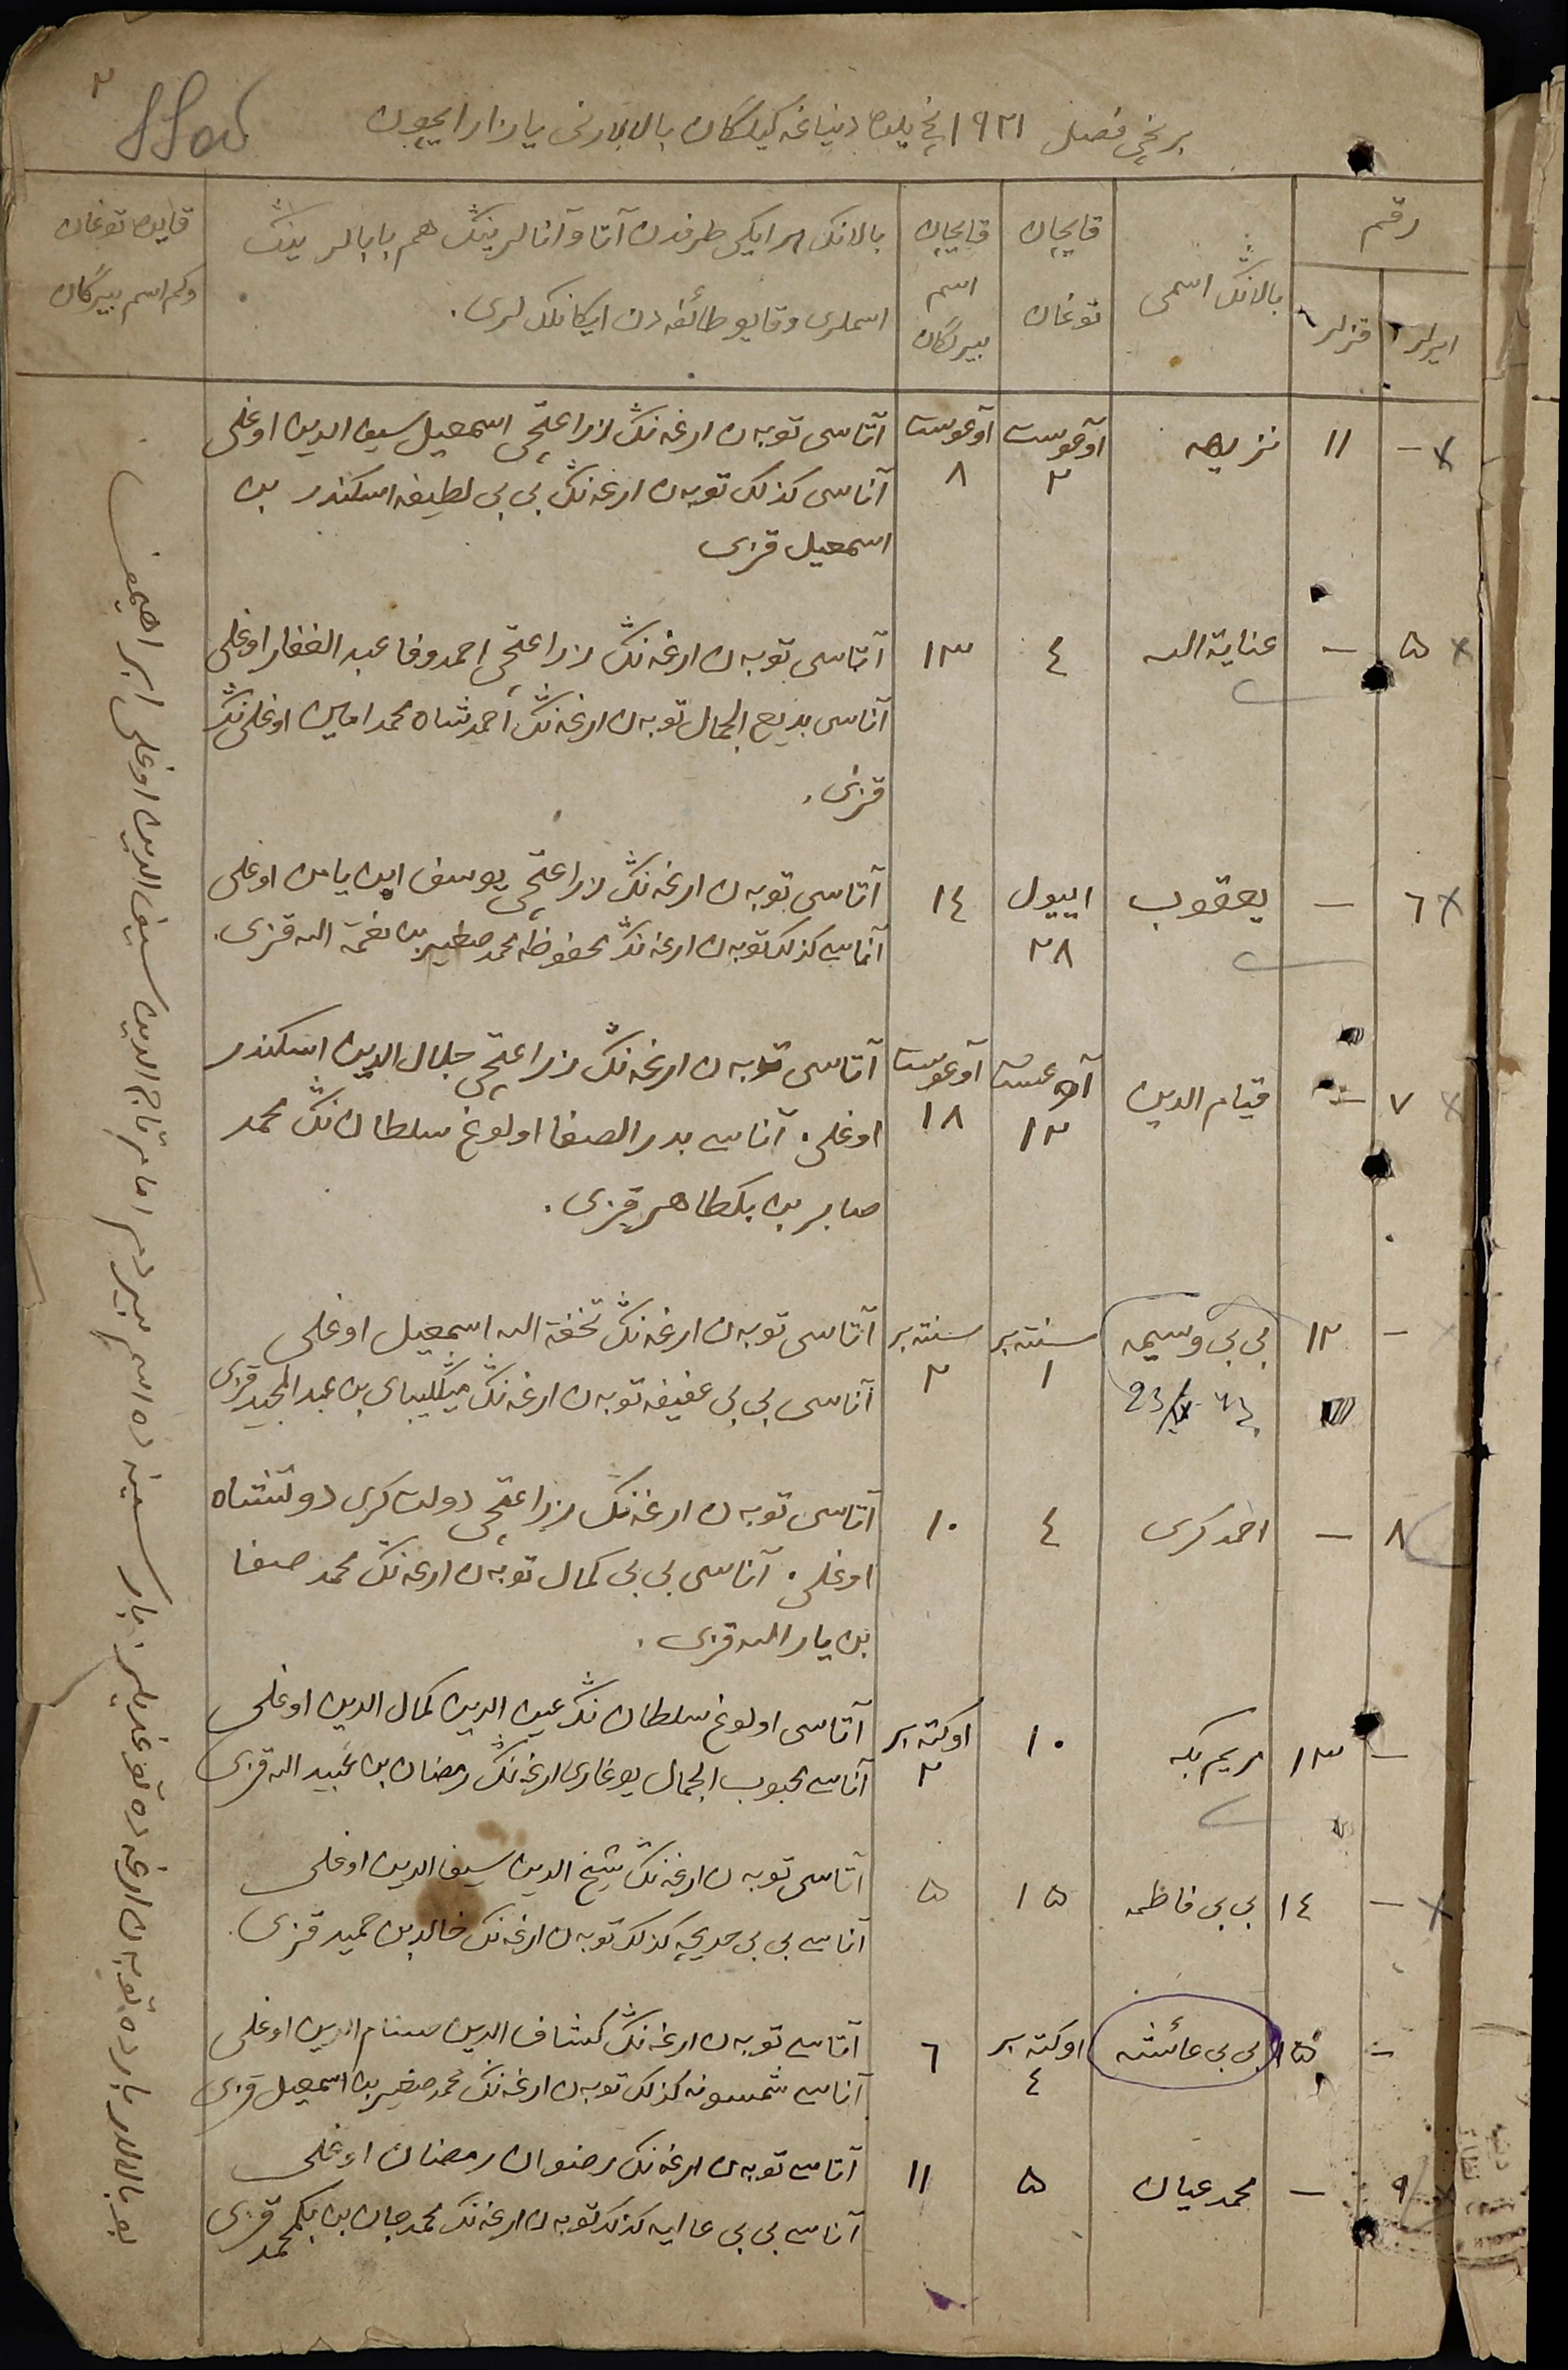 ٢
برنچی فصل ١٩٢١ نچی یلده دنیاغه کیلگان بالالارنی یازار ایچون
رقم
ایرلر
قزلر
بالانڭ اسمی
قایچان توغان
قایچان اسم بیرلگان
بالانڭ هر ایکی طرفدن آتا و آنا لرینڭ هم بابالرینڭ
اسملری و قایو طائفه دن ایکانلکلری .
قایده توغان
وکم اسم بیرگان
— ١١ نزیهه آوغوست ٢ آوغوست ٨
آتاسی توبه ن ارغه نڭ زراعتچی اسمعیل سیف الدین اوغلی
آناسی کذلک توبه ن ارغه نڭ بی بی لطیفه اسکندر بن
اسمعیل قزی
٥ — عنایة الله ٤ ١٣
آتاسی توبه ن ارغه نڭ زراعتچی احمدوفا عبد الغفار اوغلی
آناسی بدیع الجمال توبه ن ارغه نڭ احمدشاه محمد امین اوغلی نڭ
قزی .
٦ — یعقوب اییول ٢٨ ١٤
آتاسی توبه ن ارغه نڭ زراعتچی یوسف ابن یامین اوغلی
آناسی کذلک توبه ن ارغه نڭ محفوظه محمد صغیر بن نعمة الله قزی .
٧ — قیام الدین آوغست ١٢ آوغوست ١٨
آتاسی توبه ن ارغه نڭ زراعتچی جلال الدین اسکندر
اوغلی . آناسی بدر الصفا اولوغ سلطان نڭ محمد
صابر بن بکطاهر قزی .
— ١٢ بی بی وسیمه سنتەبر ١ سنتەبر ٢
آتاسی توبه ن ارغه نڭ تحفة الله اسمعیل اوغلی
آناسی بی بی عفیفه توبه ن ارغه نڭ مینگلیبای بن عبد المجید قزی
٨ — احمد کری ٤ ١٠
آتاسی توبه ن ارغه نڭ زراعتچی دولت کری دولتشاه
اوغلی . آناسی بی بی کمال توبه ن ارغه نڭ محمد صفا
بن یار الله قزی .
— ١٣ مریم بکه ١٠ اوکتەبر ٢
آتاسی اولوغ سلطان نڭ عین الدین کمال الدین اوغلی
آناسی محبوب الجمال یوغاری ارغه نڭ رمضان بن عبید الله قزی
— ١٤ بی بی فاطمه ١٥ ٥
آتاسی توبه ن ارغه نڭ شیخ الدین سیف الدین اوغلی
آناسی بی بی خدیجه کذلک توبه ن ارغه نڭ خالد بن حمید قزی .
— ١٥ بی بی عائشه اوکتەبر ٤ ٦
آتاسی توبه ن ارغه نڭ کشاف الدین حسام الدین اوغلی
آناسی شمسونه کذلک توبه ن ارغه نڭ محمد صغیر بن اسمعیل قزی
٩ — محمد عیان ٥ ١١
آتاسی توبه ن ارغه نڭ رضوان رمضان اوغلی
آناسی بی بی عالیه کذلک توبه ن ارغه نڭ محمدجان بن بکمحمد قزی
بو بالالار بارده توبه ن ارغه ده توغدیلر . بار سینه ده اسم بیردم امام تاج الدین سیف الدین اوغلی ابراهیمف